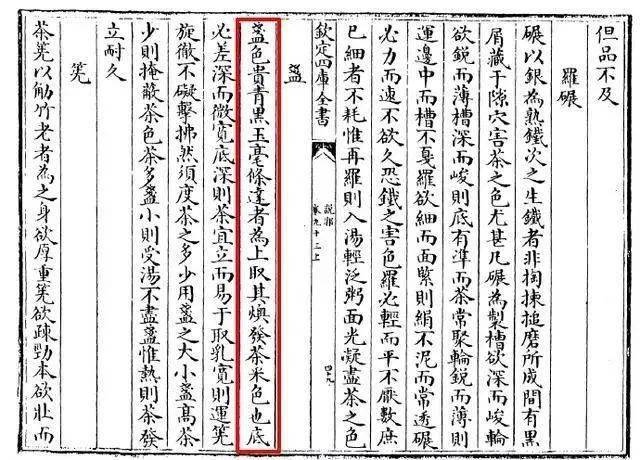 但品不及
羅碾
碾以銀為上熟鐵次之生鐵者非掏揀搥磨所成間有黑
屑藏于隙穴害茶之色尤甚凡碾為製槽欲深而峻輪
欲鋭而薄槽深而峻則底有準而茶常聚輪鋭而薄則
運邊中而槽不戛羅欲細而面緊則絹不泥而常透碾
必力而速不欲久恐鐵之害色羅必輕而平不厭數庶
已細者不耗惟再羅則入湯輕泛粥面光凝盡茶之色
欽定四庫全書
説郛
卷九十三上
四九
盞
盞色貴青黑玉毫條達者為上取其燠發茶采色也底
必差深而微寛底深則茶宜立而易于取乳寛則運筅
旋徹不礙擊拂然須度茶之多少用盞之大小盞髙茶
少則掩蔽茶色茶多盞小則受湯不盡盞惟熱則茶發
立耐久
筅
茶筅以觔竹老者為之身欲厚重筅欲疎勁本欲壯而